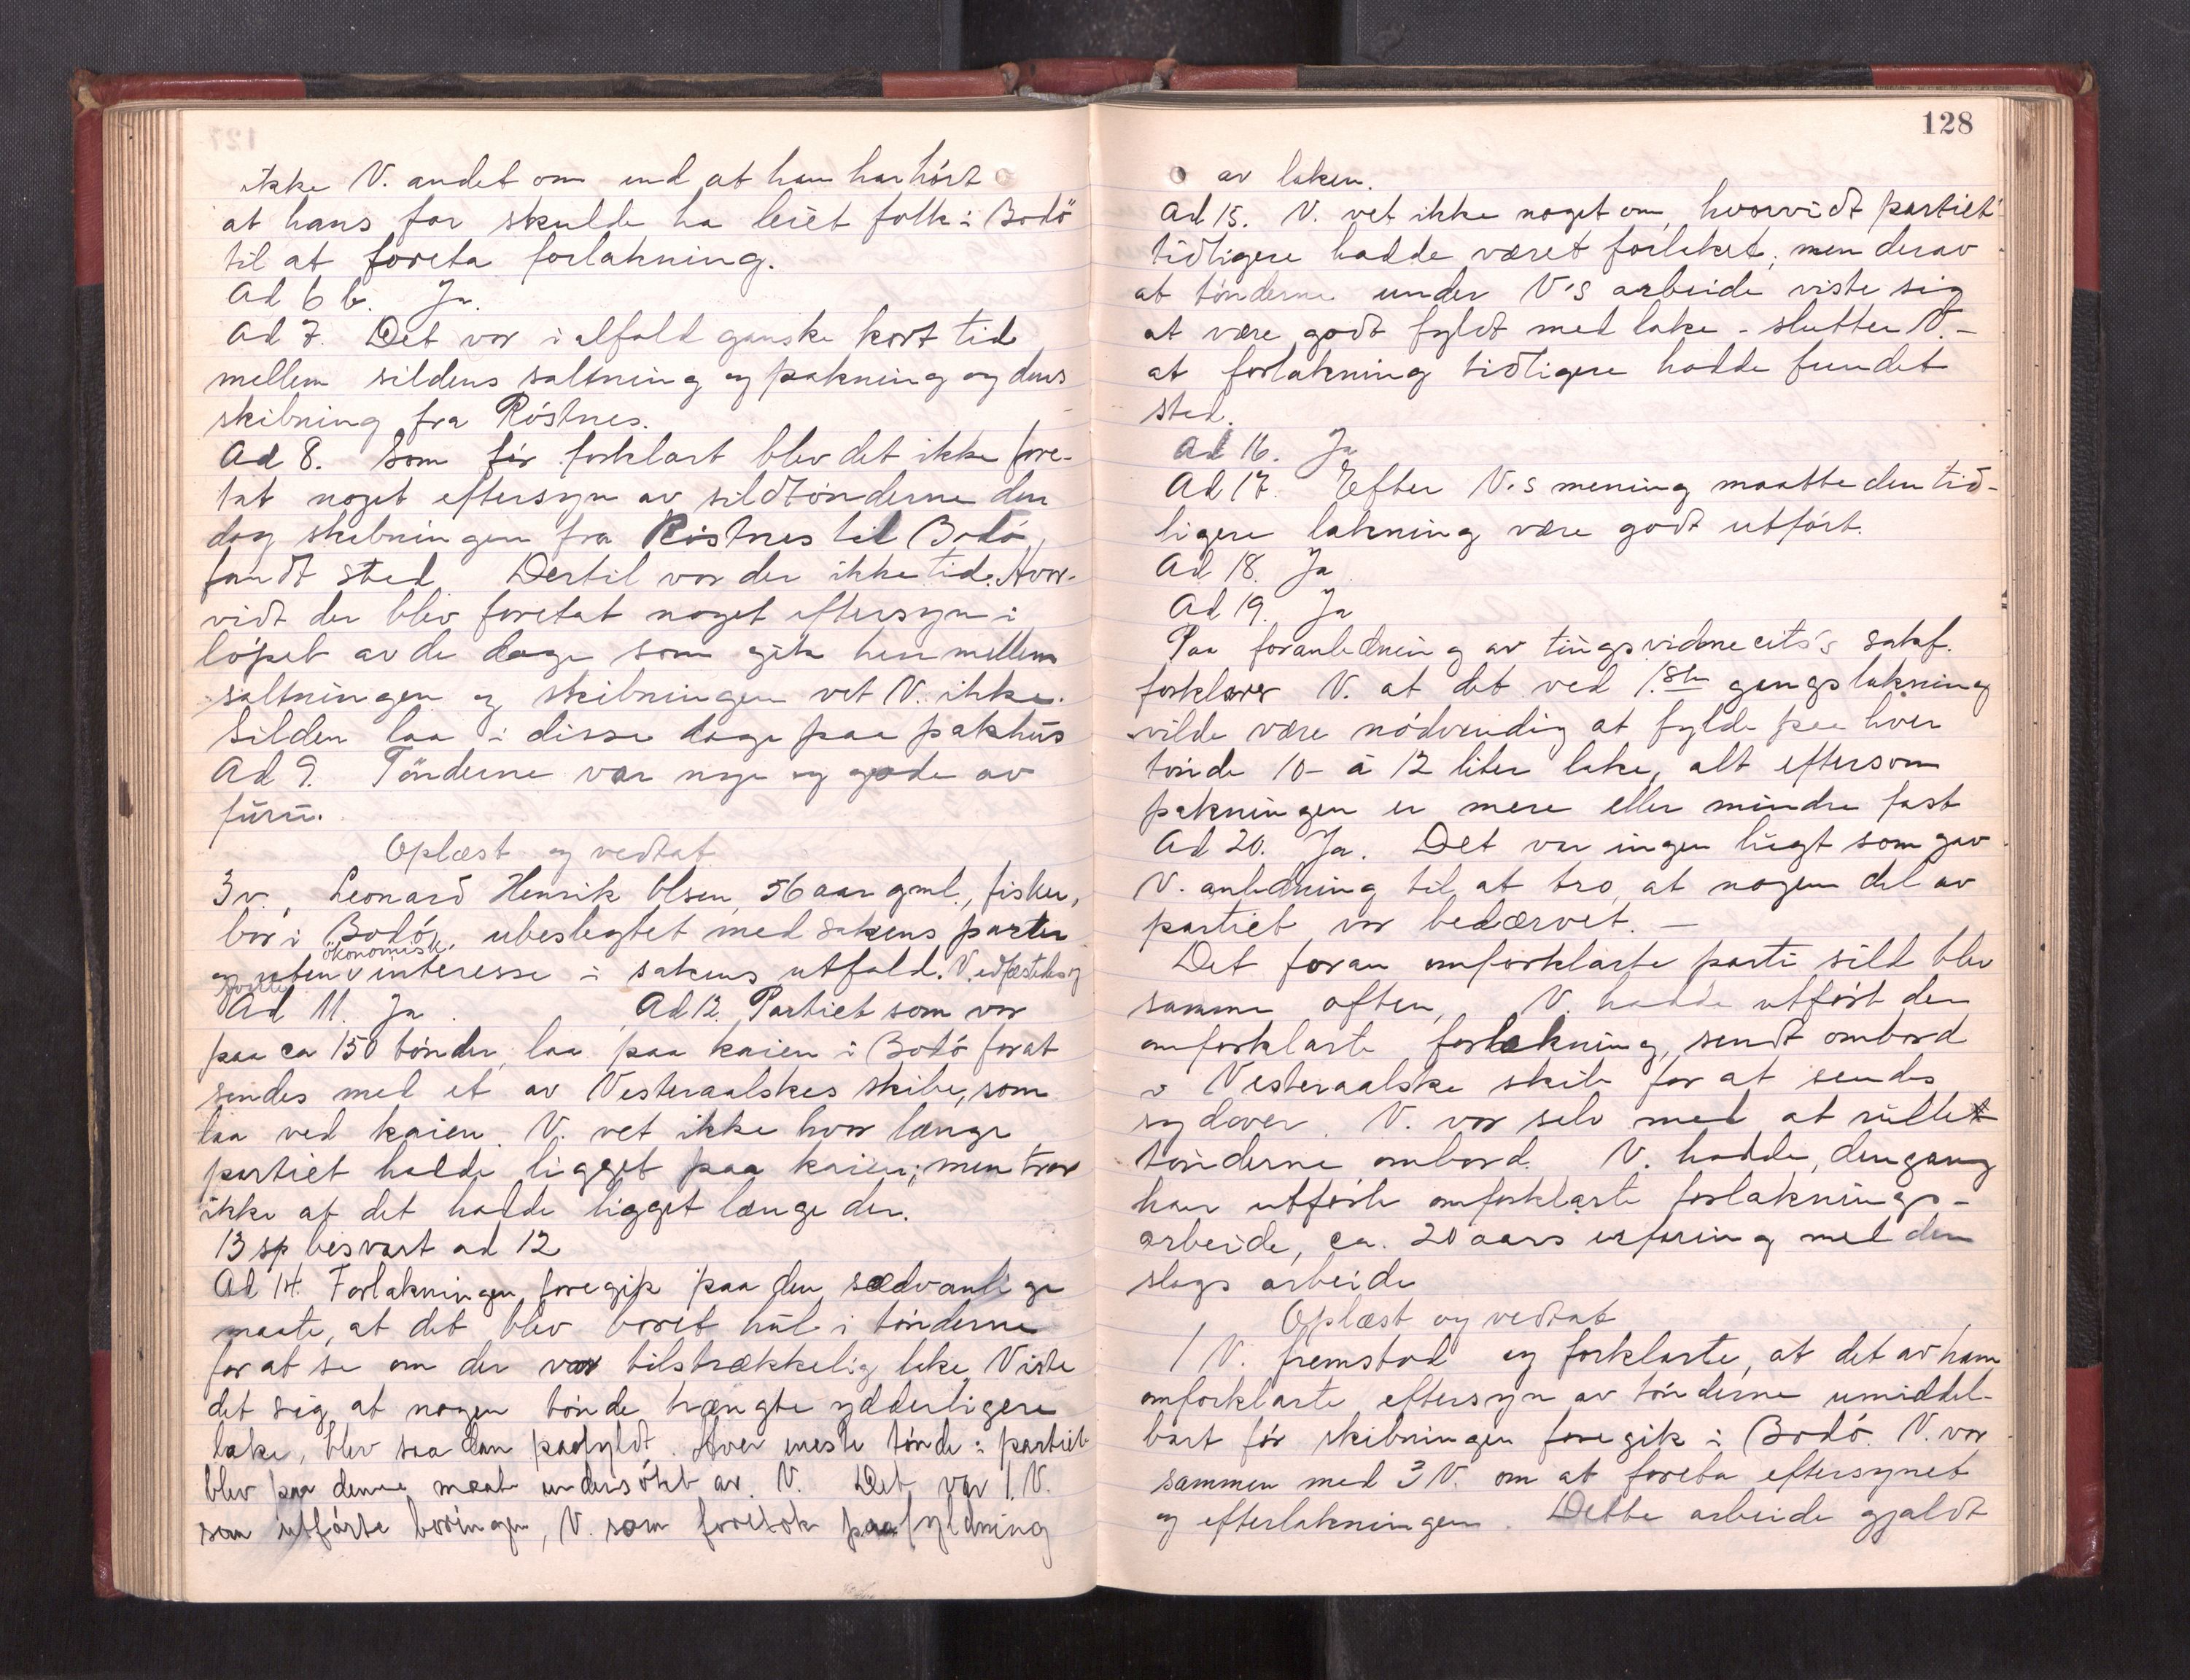 ikke V. andet om end at han har hört
at hans far skulde ha leiet folk i Bodö
til at foreta forlakning.
Ad 6 b. Ja.
Ad 7. Det var i alfald ganske kort tid
mellem sildens saltning og pakning og dens
skibning fra Röstnes.
Ad 8. Som för forklart blev det ikke fore-
tat noget eftersyn av sildtönderne den
dag skibningen fra Röstnes til Bodö
fandt sted. Dertil var der ikke tid. Hvor-
vidt der blev foretat noget eftersyn i
löpet av de dage som gik hen mellem
saltningen og skibningen vet V. ikke.
Silden laa i disse dage paa pakhus
Ad 9. Tönderne var nye og gode av
furu.
Oplæst og vedtat
3 v., Leonard Henrik Olsen, 56 aar gml., fisker,
bor i Bodö, ubeslegtet med sakens parter
ökonomisk
og uten v interesse i sakens utfald. V. edfæstedes og
Ad 11. Ja. Ad 12. Partiet som var
paa ca 150 tönder, laa paa kaien i Bodö for at
sendes med et av Vesteraalskes skibe, som
laa ved kaien. V. vet ikke hvor længe
partiet hadde ligget paa kaien; men tror
ikke at det hadde ligget længe der.
13 sp besvart ad 12
Ad 14. Forlakningen foregik paa den sædvanlige
maate, at det blev boret hul i tönderne
for at se om der var tilstrækkelig lake. Viste
det sig at nogen tönde trængte ydderligere
lake, blev saadan paafyldt. Hver eneste tönde i partiet
blev paa denne maate undersökt av V. Det var 1. V.
som utförte boringen, V. som foretok paafyldning
128
av laken.
Ad 15. V. vet ikke noget om, hvorvidt partiet
tidligere hadde været forlaket, men derav
at tönderne under V's arbeide viste sig
at være godt fyldt med lake - slutter V. -
at forlakning tidligere hadde fundet
sted.
Ad 16. Ja
Ad 17. Efter V.s mening maatte den tid-
ligere lakning være godt utfört.
Ad 18. Ja
Ad 19. Ja
Paa foranledning av tingsvidnecits's sakf.
forklarer V. at det ved 1.ste gangs lakning
vilde være nödvendig at fylde paa hver
tönde 10- à 12 liter lake, alt eftersom
pakningen er mere eller mindre fast
Ad 20. Ja. Det var ingen lugt som gav
V. anledning til at tro, at nogen del av
partiet var bedærvet. -
Det foran omforklarte parti sild blev
samme aften, V. hadde utfört den
omforklarte forlakning, sendt ombord
i Vesteraalske skib for at sendes
sydover. V. var selv med at rullet
tönderne ombord. V. hadde, dengang
han utförte omforklarte forlaknings-
arbeide, ca. 20 aars erfaring med den
slags arbeide
Oplæst og vedtat
1 V. fremstod og forklarte, at det av ham
omforklarte eftersyn av tönderne umiddel-
bart för skibningen foregik i Bodö. V. var
sammen med 3 V. om at foreta eftersynet
og efterlakningen. Dette arbeide gjaldt